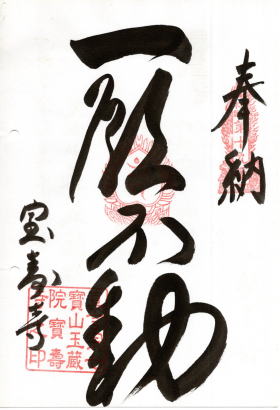 奉納
一願不動
宝寿寺
寶山玉蔵
院寶壽
印